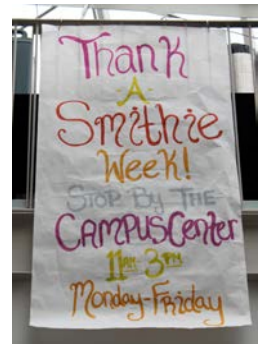 Thank
-A-
Smithie
Week!
STOP BY THE
CAMPUS Center
11AM-3PM
Monday-Friday